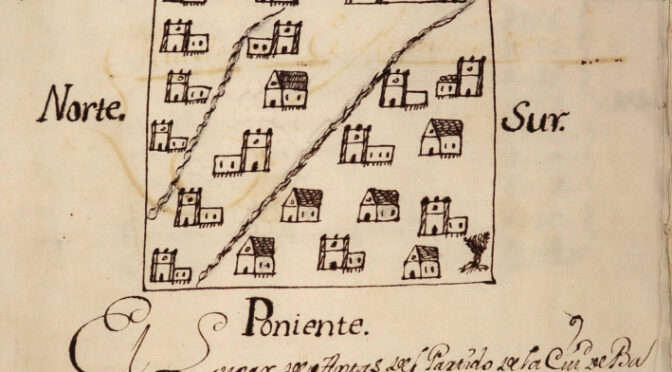 Norte.
Sur.
Poniente.
El Lugar de Antas del Partido de la Ciud de Ba